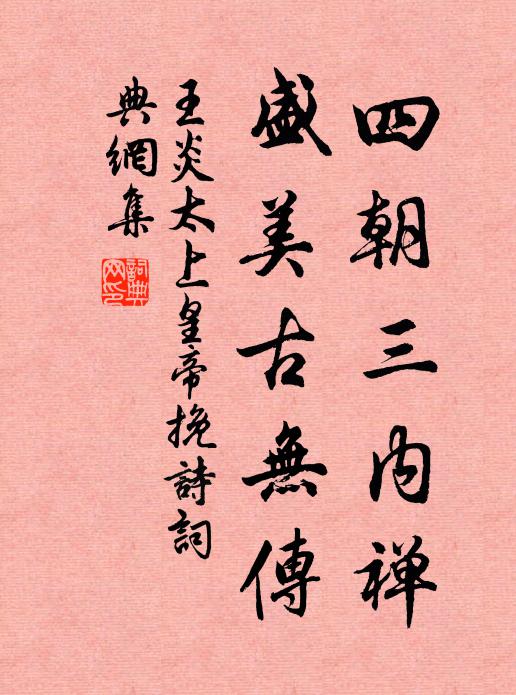 四朝三内禅
盛美古無傳
王炎太上皇帝挽詩詞
典網集
詞典
网印